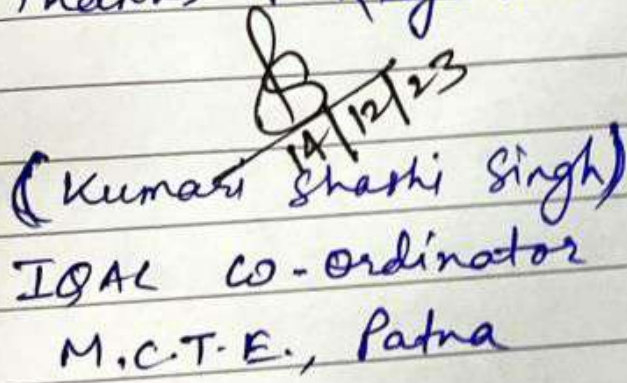 14/12/23
(Kumari Shashi Singh)
IQAC Co-ordinator
M.C.T.E., Patna